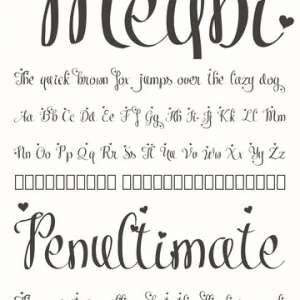 The quick brown fox jumps over the lazy dog
Aa Bb Cc Dd Ee Ff Gg Hh Ii Jj Kk Ll Mm
Nn Oo Pp Qq Rr Ss Tt Uu Vv Ww Xx Yy Zz
Penultimate